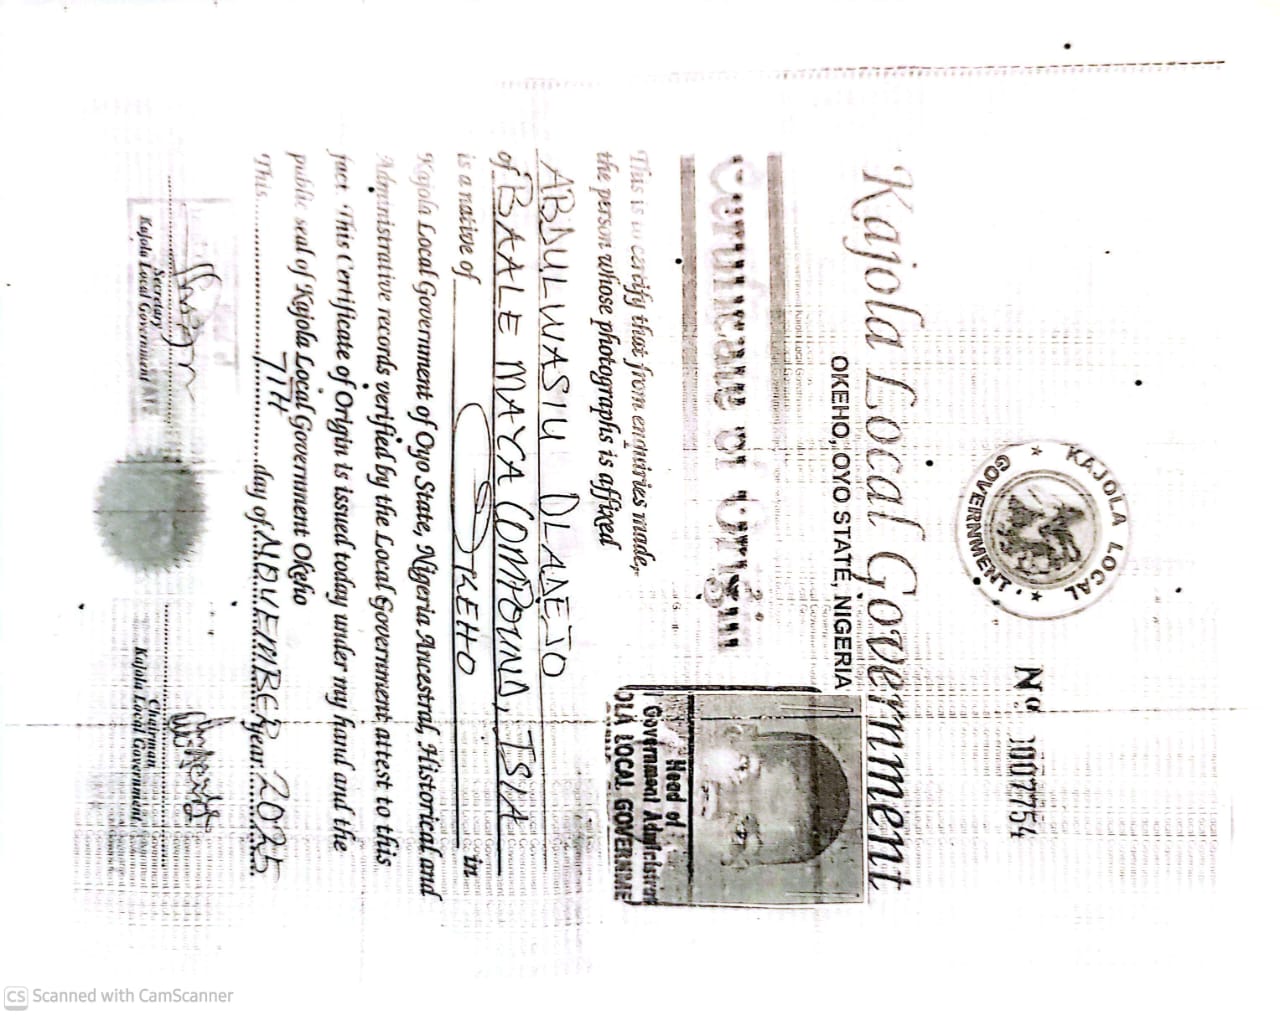 KAJOLA LOCAL
GOVERNMENT
Nº 007754
Kajola Local Government
OKEHO, OYO STATE, NIGERIA
Certificate of Origin
This is to certify that from enquiries made,
the person whose photographs is affixed
ABDULWASIU OLANEJO
of BAALE MAYA COMPOUND, ISIA
is a native of OKEHO in
Kajola Local Government of Oyo State, Nigeria Ancestral, Historical and
Administrative records verified by the Local Government attest to this
fact. This Certificate of Origin is issued today under my hand and the
public seal of Kajola Local Government Okeho
This 7TH day of NOVEMBER year 2025
Head of
Government Administrat
OLA LOCAL GOVERNME
Secretary
Kajola Local Government
Chairman
Kajola Local Government
CS Scanned with CamScanner